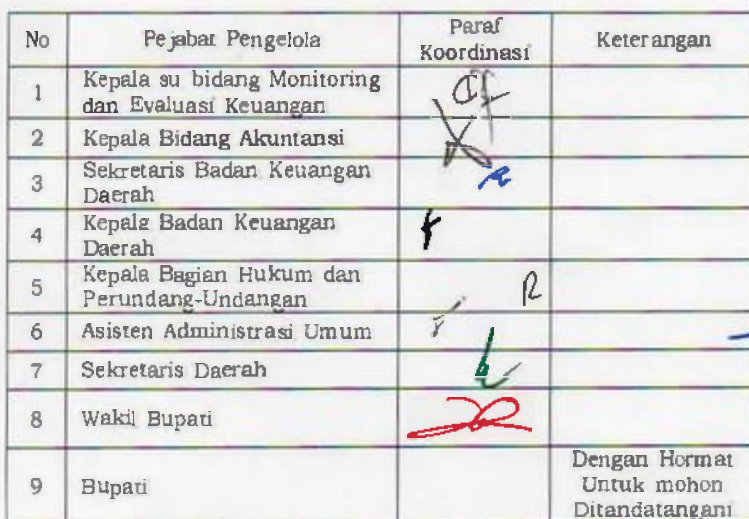 No Pejabat Pengelola Paraf Koordinasi Keterangan
1 Kepala su bidang Monitoring
dan Evaluasi Keuangan
2 Kepala Bidang Akuntansi
3 Sekretaris Badan Keuangan
Daerah
4 Kepala Badan Keuangan
Daerah
5 Kepala Bagian Hukum dan
Perundang-Undangan
6 Asisten Administrasi Umum
7 Sekretaris Daerah
8 Wakil Bupati
9 Bupati
Dengan Hormat
Untuk mohon
Ditandatangani